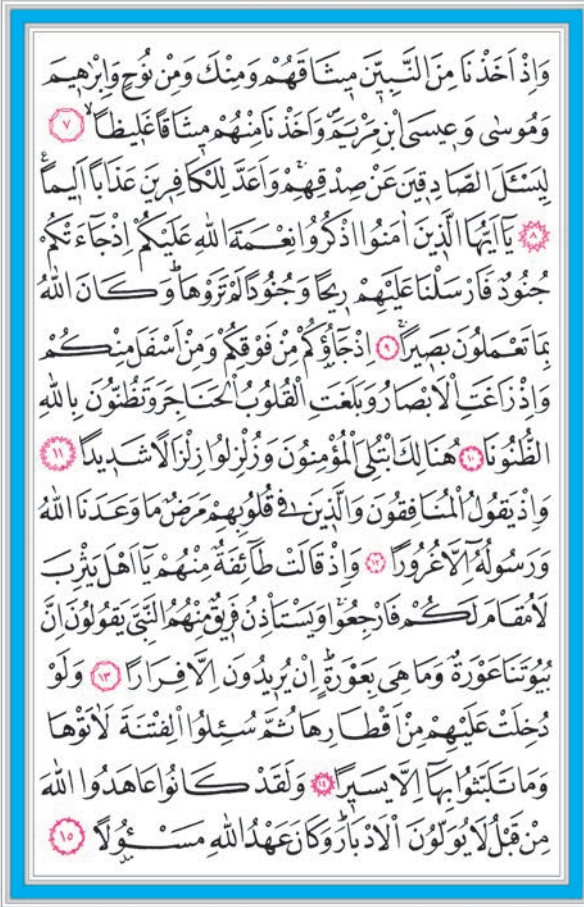 وَاِذْ اَخَذْنَا مِنَ النَّبِيّٖنَ مٖيثَاقَهُمْ وَمِنْكَ وَمِنْ نُوحٍ وَاِبْرٰهٖيمَ
وَمُوسٰى وَعٖيسَى ابْنِ مَرْيَمَۖ وَاَخَذْنَا مِنْهُمْ مٖيثَاقًا غَلٖيظًاۙ ٧
لِيَسْـَٔلَ الصَّادِقٖينَ عَنْ صِدْقِهِمْۚ وَاَعَدَّ لِلْكَافِرٖينَ عَذَابًا اَلٖيمًاࣖ
٨ يَٓا اَيُّهَا الَّذٖينَ اٰمَنُوا اذْكُرُوا نِعْمَةَ اللّٰهِ عَلَيْكُمْ اِذْ جَٓاءَتْكُمْ
جُنُودٌ فَاَرْسَلْنَا عَلَيْهِمْ رٖيحًا وَجُنُودًا لَمْ تَرَوْهَاؕ وَكَانَ اللّٰهُ
بِمَا تَعْمَلُونَ بَصٖيرًاۚ ٩ اِذْ جَٓاؤُ۫كُمْ مِنْ فَوْقِكُمْ وَمِنْ اَسْفَلَ مِنْكُمْ
وَاِذْ زَاغَتِ الْاَبْصَارُ وَبَلَغَتِ الْقُلُوبُ الْحَنَاجِرَ وَتَظُنُّونَ بِاللّٰهِ
الظُّنُونَا ١٠ هُنَالِكَ ابْتُلِيَ الْمُؤْمِنُونَ وَزُلْزِلُوا زِلْزَالًا شَدٖيدًا ١١
وَاِذْ يَقُولُ الْمُنَافِقُونَ وَالَّذٖينَ فٖي قُلُوبِهِمْ مَرَضٌ مَا وَعَدَنَا اللّٰهُ
وَرَسُولُهُٓ اِلَّا غُرُورًا ١٢ وَاِذْ قَالَتْ طَٓائِفَةٌ مِنْهُمْ يَٓا اَهْلَ يَثْرِبَ
لَا مُقَامَ لَكُمْ فَارْجِعُواۚ وَيَسْتَأْذِنُ فَرٖيقٌ مِنْهُمُ النَّبِيَّ يَقُولُونَ اِنَّ
بُيُوتَنَا عَوْرَةٌ وَمَا هِيَ بِعَوْرَةٍۚ اِنْ يُرٖيدُونَ اِلَّا فِرَارًا ١٣ وَلَوْ
دُخِلَتْ عَلَيْهِمْ مِنْ اَقْطَارِهَا ثُمَّ سُئِلُوا الْفِتْنَةَ لَاٰتَوْهَا
وَمَا تَلَبَّثُوا بِهَٓا اِلَّا يَسٖيرًا ١٤ وَلَقَدْ كَانُوا عَاهَدُوا اللّٰهَ
مِنْ قَبْلُ لَا يُوَلُّونَ الْاَدْبَارَؕ وَكَانَ عَهْدُ اللّٰهِ مَسْـُٔولًا ١٥